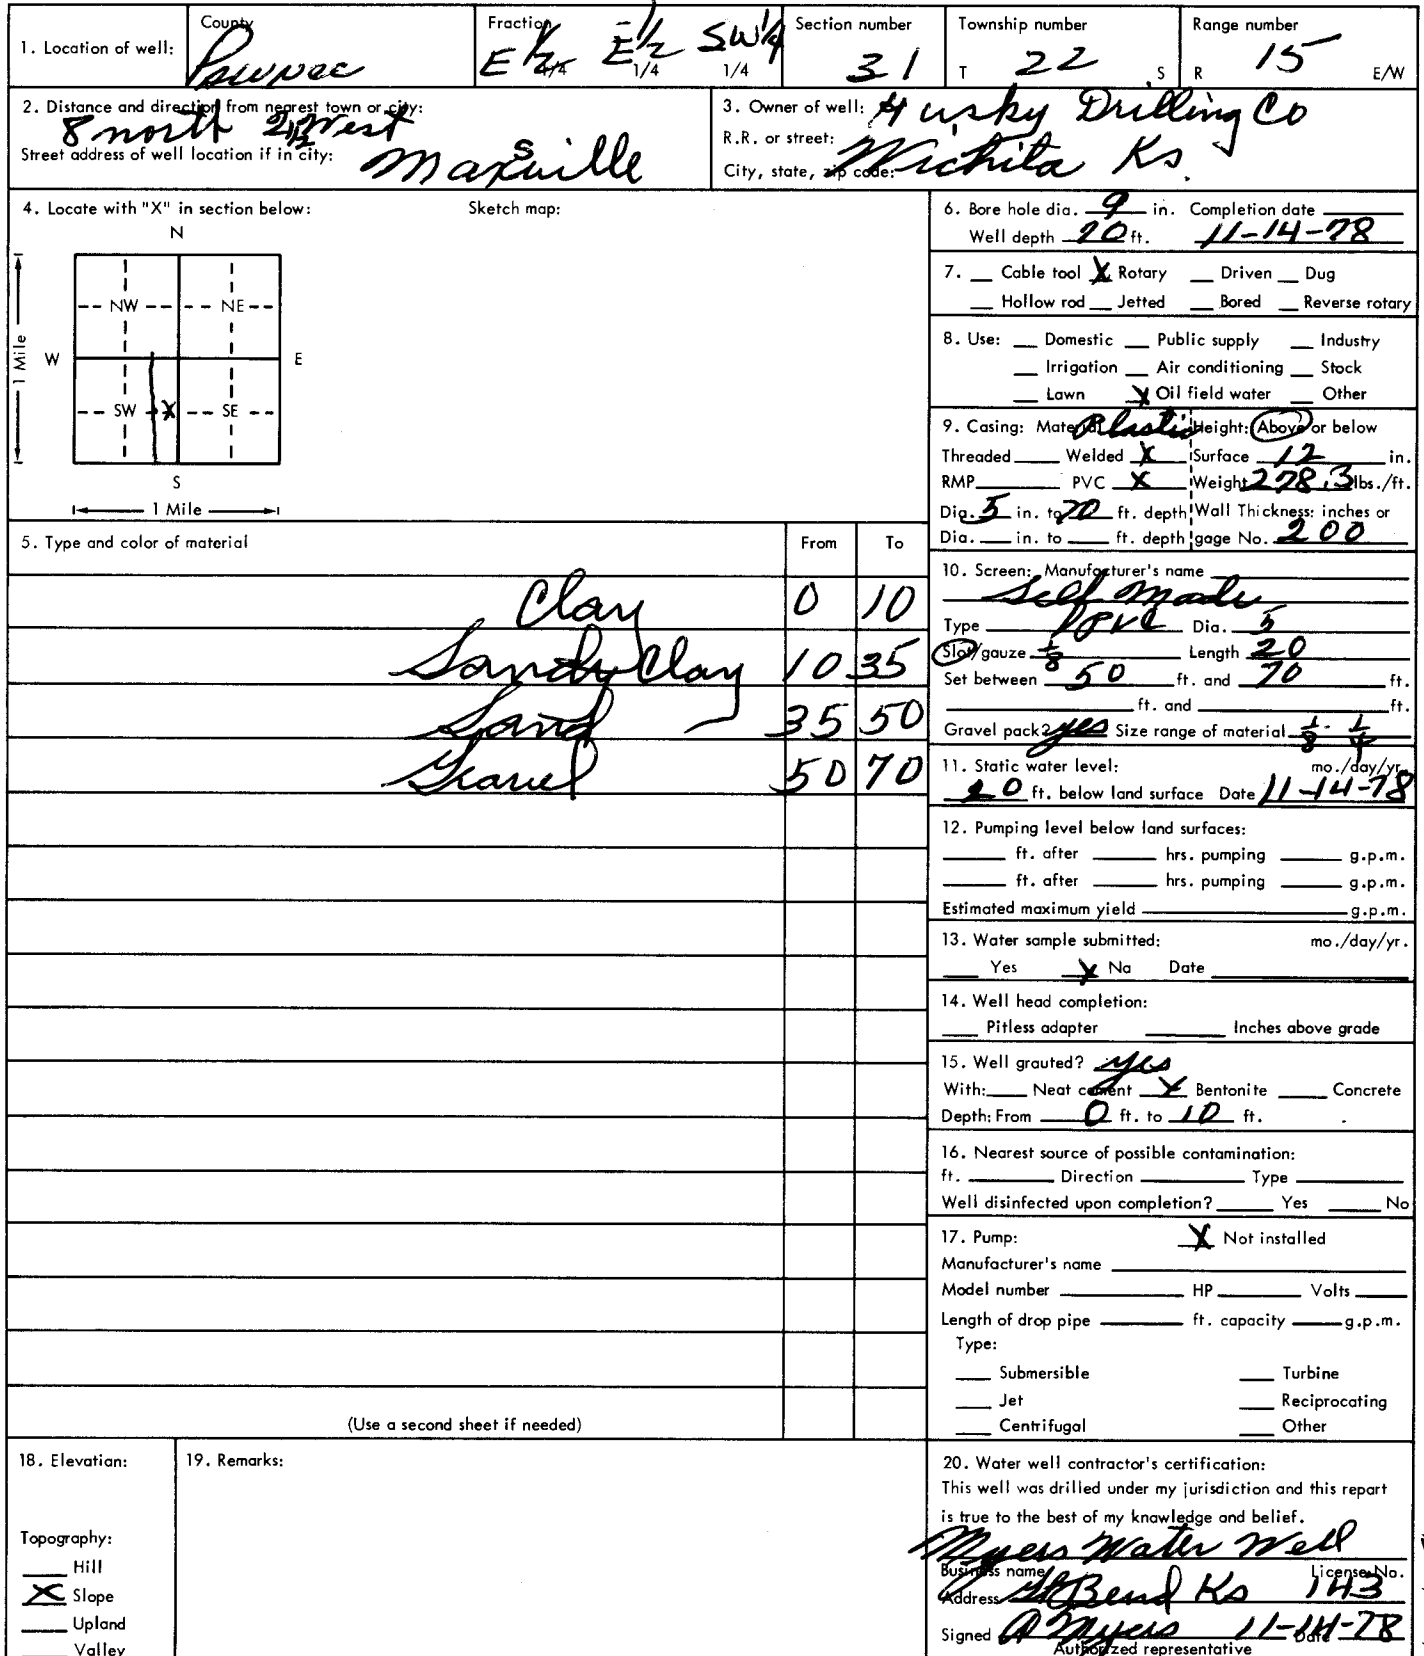 1. Location of well: County Pawnee Fraction E 1/2 1/4 E 1/2 1/4 SW 1/4 1/4 Section number 31 Township number T 22 S Range number R 15 E/W
2. Distance and direction from nearest town or city: 8 north 2 1/2 West
Street address of well location if in city: Maxsville
3. Owner of well: Husky Drilling Co
R.R. or street:
City, state, zip code: Wichita Ks.
4. Locate with "X" in section below: Sketch map:
N
NW NE
W E
1 Mile
SW X SE
S
1 Mile
6. Bore hole dia. 9 in. Completion date
Well depth 70 ft. 11-14-78
7. Cable tool X Rotary Driven Dug
Hollow rod Jetted Bored Reverse rotary
8. Use: Domestic Public supply Industry
Irrigation Air conditioning Stock
Lawn X Oil field water Other
9. Casing: Material Plastic Height: Above or below
Threaded Welded X Surface 12 in.
RMP PVC X Weight 278.3 lbs./ft.
Dia. 5 in. to 70 ft. depth Wall Thickness: inches or
Dia. in. to ft. depth gage No. 200
5. Type and color of material From To
Clay 0 10
Sandy Clay 10 35
Sand 35 50
Gravel 50 70
(Use a second sheet if needed)
10. Screen: Manufacturer's name
Self made
Type PVC Dia. 5
Slot/gauze 1/8 Length 20
Set between 50 ft. and 70 ft.
ft. and ft.
Gravel pack? yes Size range of material 1/8 - 1/4
11. Static water level: mo./day/yr.
20 ft. below land surface Date 11-14-78
12. Pumping level below land surfaces:
ft. after hrs. pumping g.p.m.
ft. after hrs. pumping g.p.m.
Estimated maximum yield g.p.m.
13. Water sample submitted: mo./day/yr.
Yes X No Date
14. Well head completion:
Pitless adapter Inches above grade
15. Well grouted? yes
With: Neat cement X Bentonite Concrete
Depth: From 0 ft. to 10 ft.
16. Nearest source of possible contamination:
ft. Direction Type
Well disinfected upon completion? Yes No
17. Pump: X Not installed
Manufacturer's name
Model number HP Volts
Length of drop pipe ft. capacity g.p.m.
Type:
Submersible Turbine
Jet Reciprocating
Centrifugal Other
18. Elevation:
Topography:
Hill
X Slope
Upland
Valley
19. Remarks:
20. Water well contractor's certification:
This well was drilled under my jurisdiction and this report
is true to the best of my knowledge and belief.
Myers Water Well
Business name License No.
Address Gt Bend Ks 143
Signed A Myers 11-14-78 Date
Authorized representative